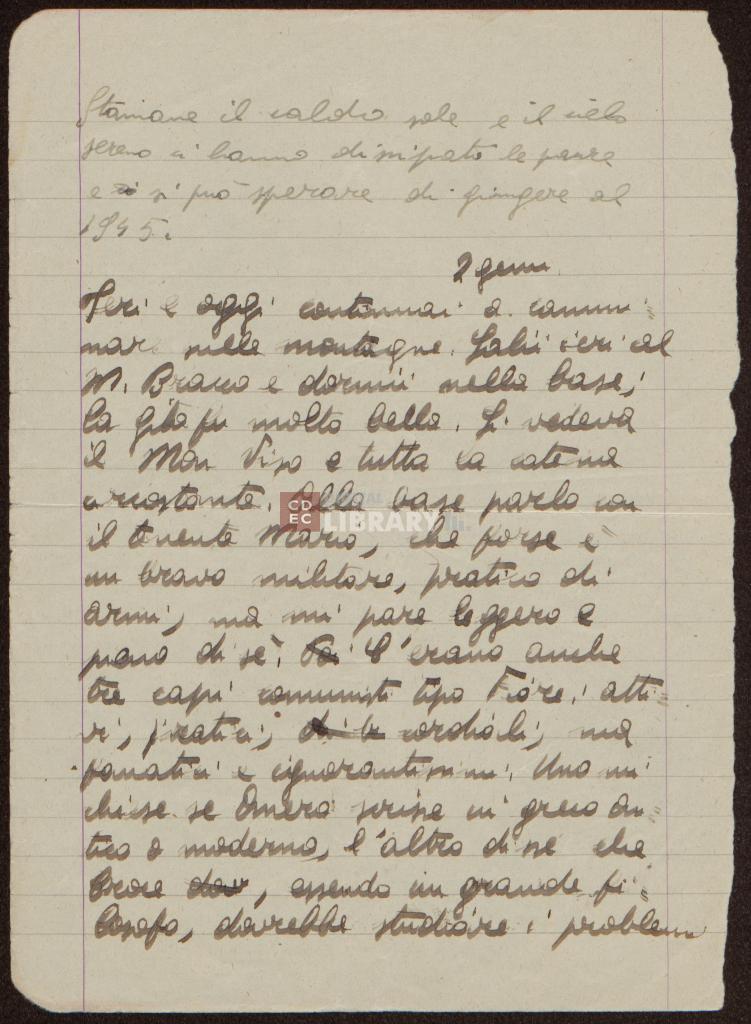 Stamane il caldo sole e il cielo
sereno ci hanno dissipato le paure
e si può sperare di giungere al
1945.
2 genn.
Ieri e oggi continuai a cammi=
nare nelle montagne. Salii ieri al
M. Bracco e dormii nella base;
la gita fu molto bella. Si vedeva
il Mon Viso e tutta la catena
circostante. Alla base parlo con
il tenente Mario, che forse è
un bravo militare, pratico di
armi, ma mi pare leggero e
pieno di sè. C'erano anche
tre capi comunisti tipo Fiore: atti=
vi, pratici, cordiali, ma
fanatici e ignorantissimi. Uno mi
chiese se Omero scrisse in greco an=
tico o moderno, l'altro disse che
Croce, essendo un grande fi=
losofo, dovrebbe studiare i problemi
CDEC
DIGITAL
LIBRARY